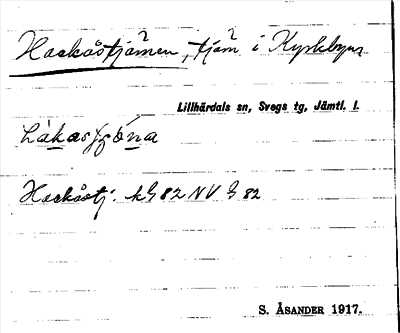 Hackåstjärnen, tjärn i Kyrkbyn
Lillhärdals sn, Svegs tg, Jämtl. l.
Hackåstj. kG 82 NV G 82
S. ÅSANDER 1917.